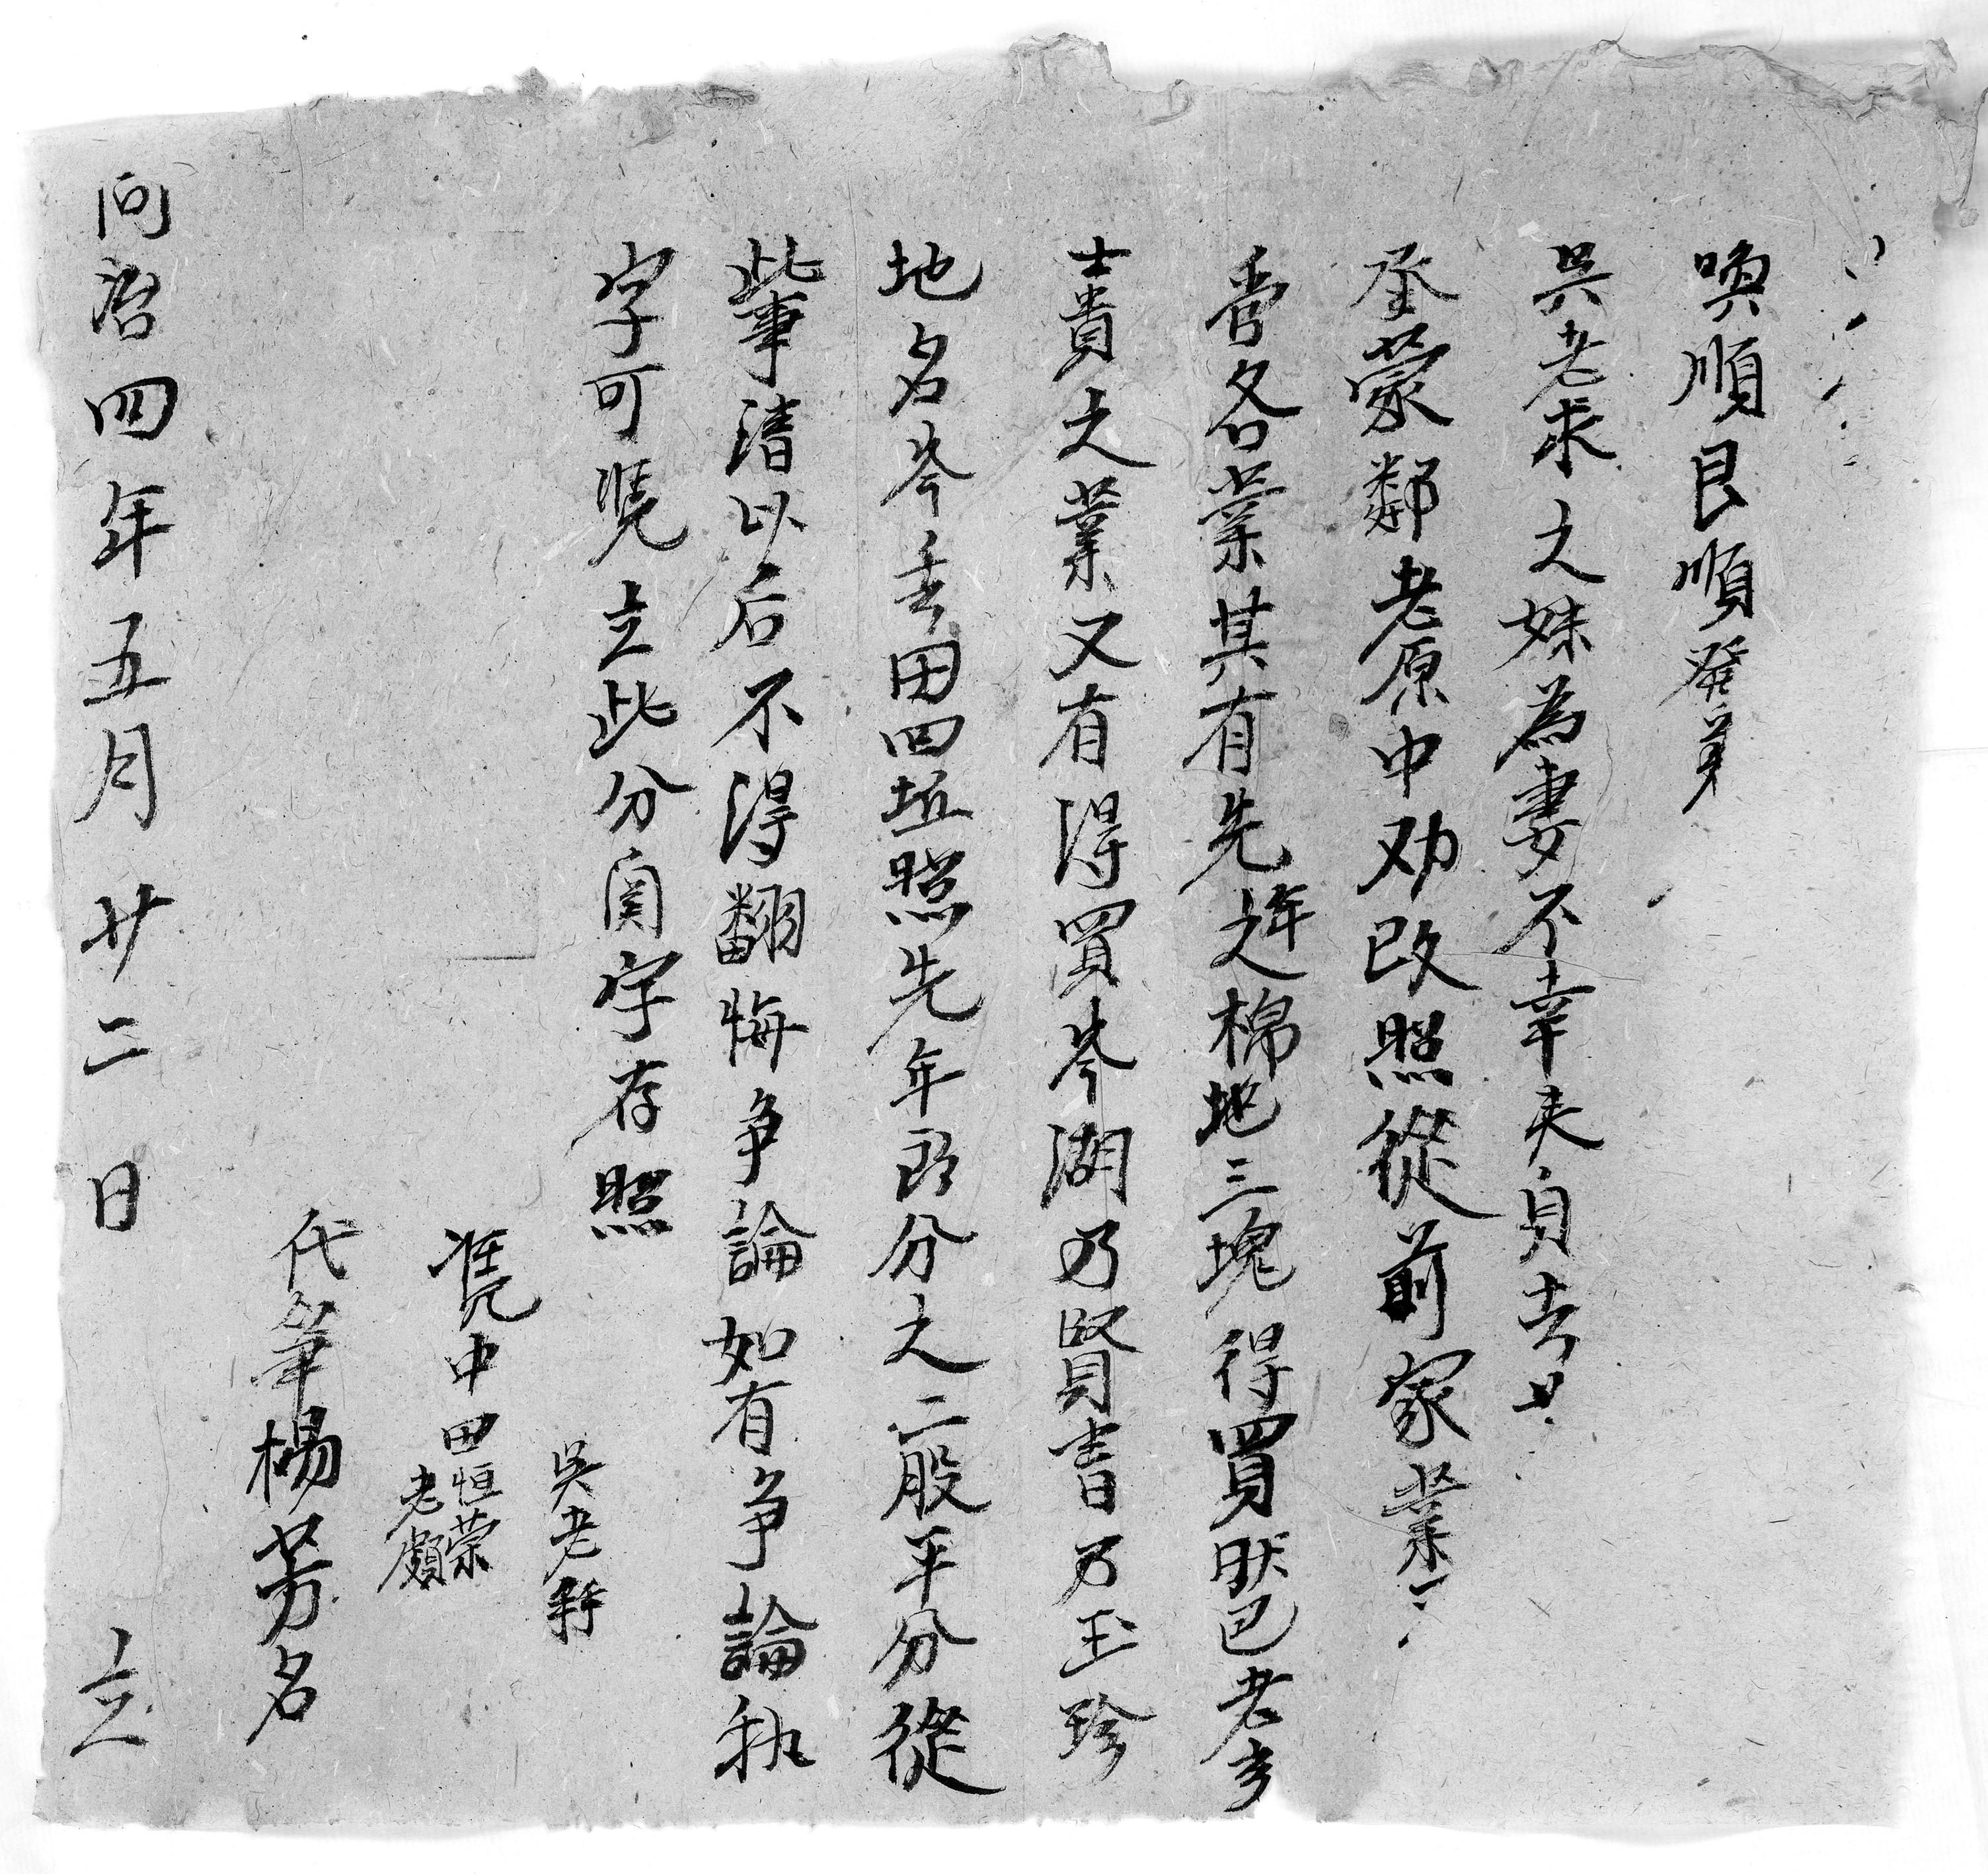 喚順艮順發弟
吳老求之妹為妻不幸夫身去世
丞蒙鄰老原中劝改照從前家業
各業其有先年之棉地三塊得買狀巴老
士貴之業又有得買岑湖乃賢書乃玉珍
地名岑 田四坵照先年所分之二股平分從
此事清以后不得翻悔争論如有争論执
字可凭立此分関字存照
吳老
凭中田恒荣
老
代筆楊芳名
同治四年五月廿二日 立